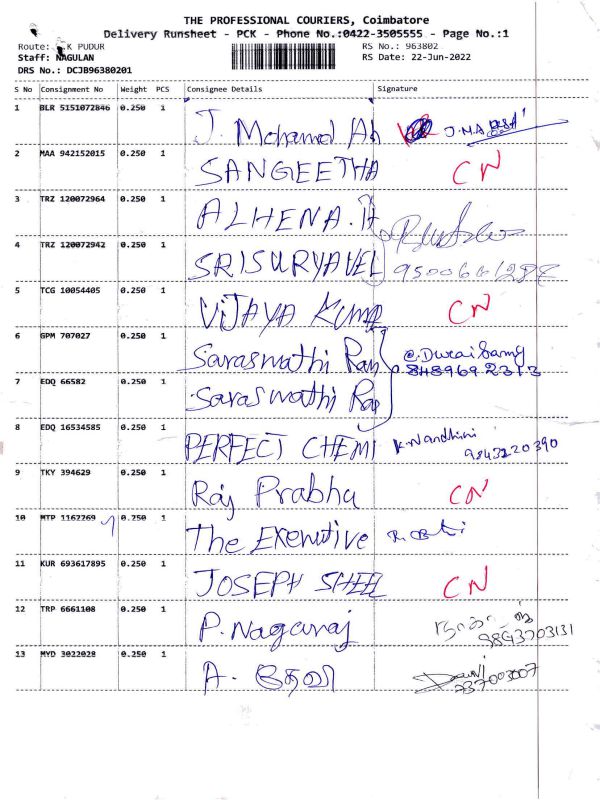 THE PROFESSIONAL COURIERS, Coimbatore
Delivery Runsheet - PCK - Phone No.:0422-3505555 - Page No.:1
Route: K PUDUR RS No.: 963802
Staff: NAGULAN RS Date: 22-Jun-2022
DRS No.: DCJB96380201
S No Consignment No Weight PCS Consignee Details Signature
1 BLR 5151072846 0.250 1 J. Mohamed Ah
2 MAA 942152015 0.250 1 SANGEETHA CN
3 TRZ 120072964 0.250 1 ALHENA.
4 TRZ 120072942 0.250 1 SRISURYAVEL
5 TCG 10054405 0.250 1 VIJAYA KUMA CN
6 GPM 707027 0.250 1 Saraswathi Ram
7 EDQ 66582 0.250 1 Saraswathi Ram
8 EDQ 16534585 0.250 1 PERFECT CHEMI K. Nandhini
9843220390
9 TKY 394629 0.250 1 Raj Prabhu CN
10 MTP 1162269 0.250 1 The Exenutive
11 KUR 693617895 0.250 1 JOSEPH SHEEL CN
12 TRP 6661108 0.250 1 P. Nagaraj
9843703131
13 MYD 3022028 0.250 1 A. தேவி
737003007